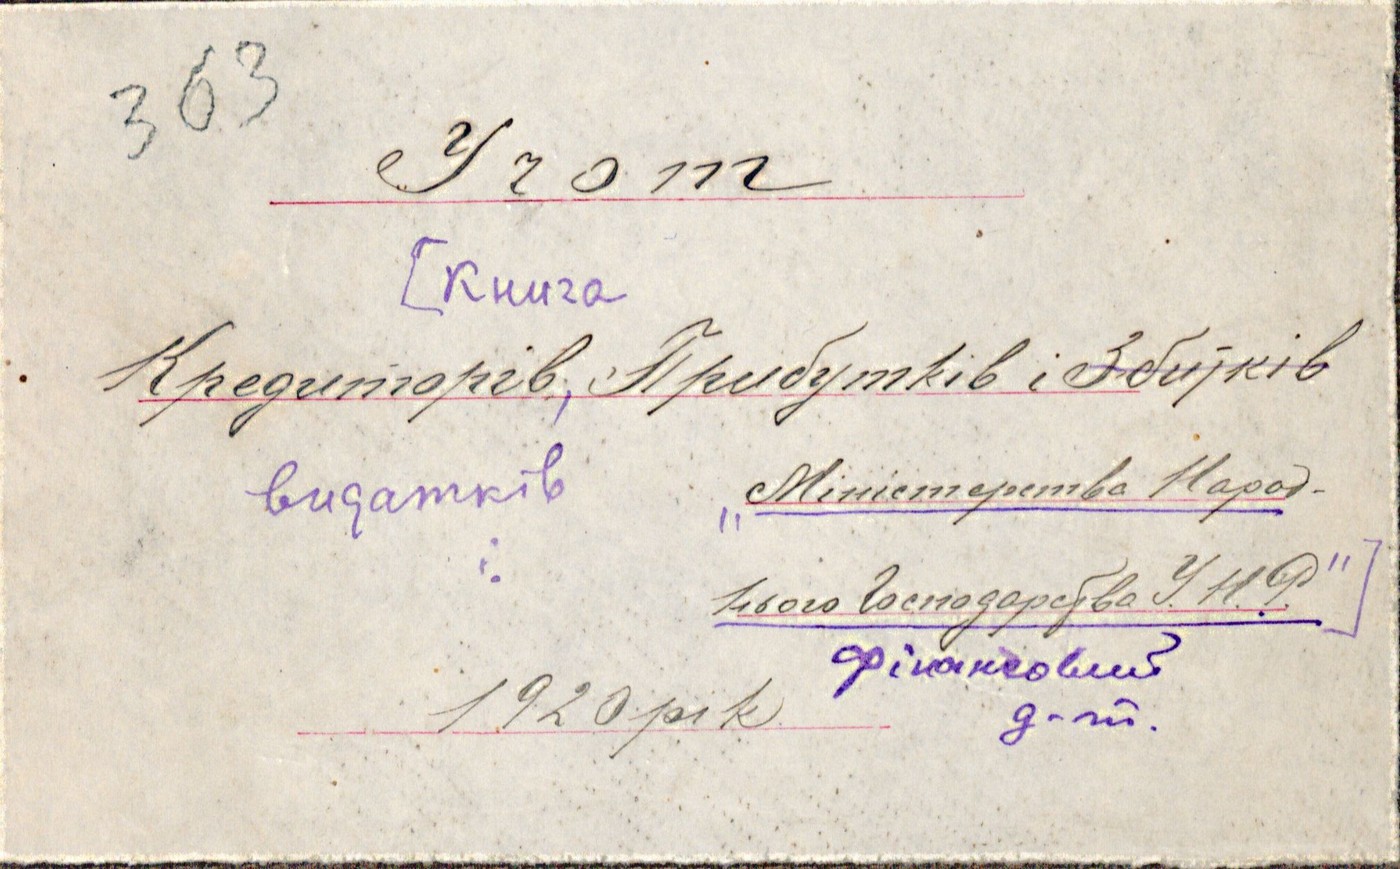 363
Учот
[Книга
Кредиторів, Прибутків і Збитків
видатків
"Міністерства Народ-
нього Господарства У.Н.Р"]
фінансовий
д-т.
1920 рік